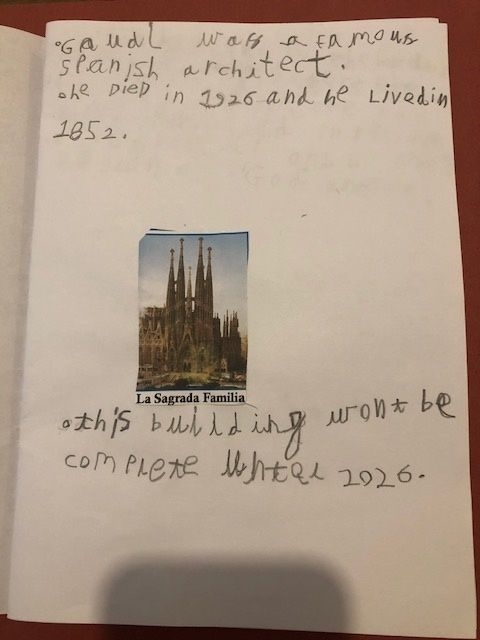 •Gaudí was a famous
spanish architect.
•he DieD in 1926 and he Lived in
1852.
La Sagrada Familia
•this building wont be
complete untel 2026.